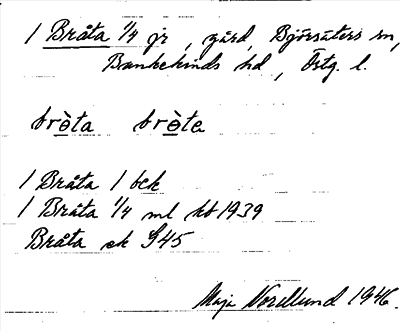 1 Bråta 1/4 jr, gård, Björsäters sn,
Bankekinds hd, Östg. l.
brò̱ta brò̱te
1 Bråta 1 bek
1 Bråta 1/4 ml kb 1939
Bråta ek S45
Maja Nordlund 1946.